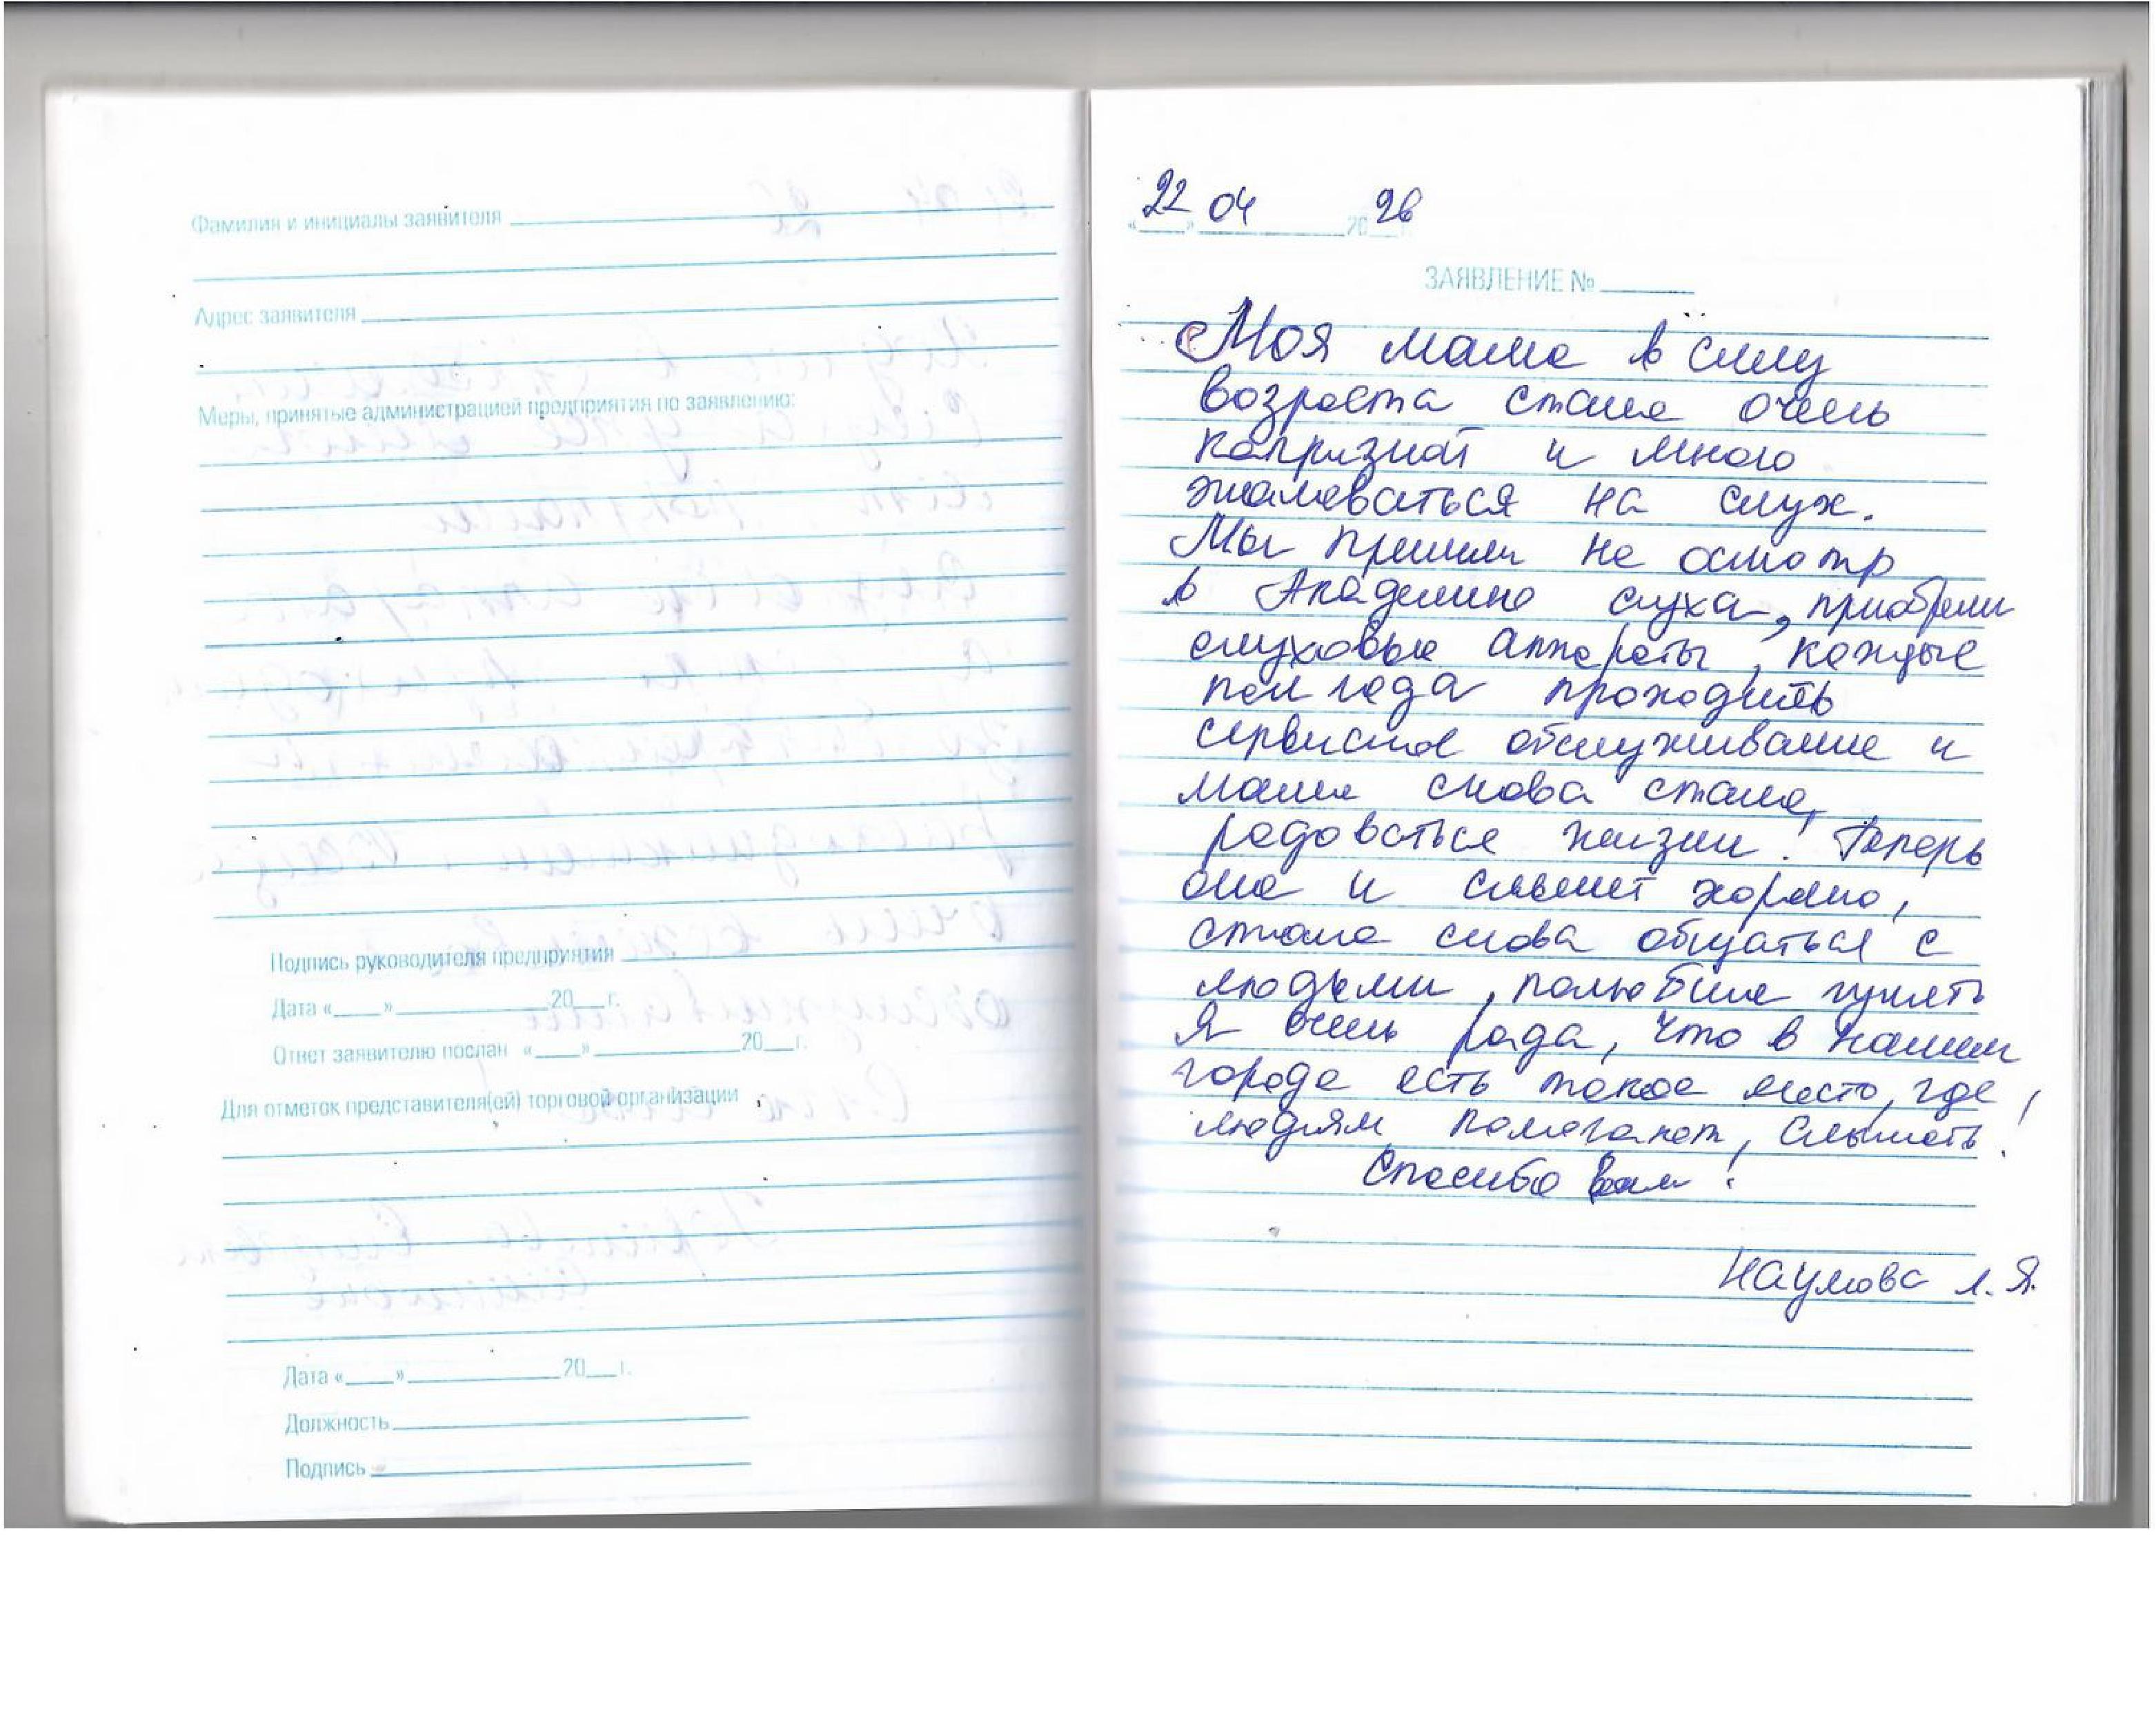 Фамилия и инициалы заявителя
Адрес заявителя
Меры, принятые администрацией предприятия по заявлению:
Подпись руководителя предприятия
Дата «___» ___ 20__г.
Ответ заявителю послан «___» ___ 20__г.
Для отметок представителя(ей) торговой организации
Дата «___» ___ 20__г.
Должность
Подпись
«22» 04 2026 г.
ЗАЯВЛЕНИЕ №
Моя мама в силу
возраста стала очень
капризной и много
жаловаться на слух.
Мы пришли на осмотр
в Академию слуха, приобрели
слуховые аппараты, каждые
пол года проходить
сервисное обслуживание и
мама снова стала
радоваться жизни! Теперь
она и слышит хорошо,
стала снова общаться с
людьми, полюбила гулять
Я очень рада, что в нашем
городе есть такое место, где
людям помогают, слышать!
Спасибо Вам!
Наумова Л. Я.